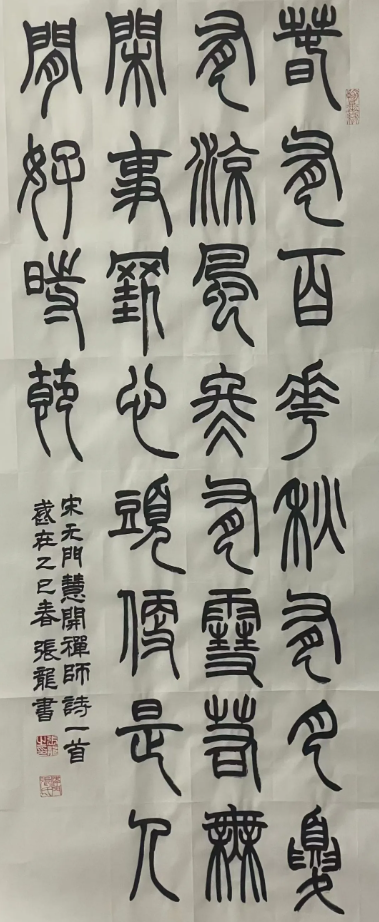 春有百花秋有月夏
有涼風冬有雪若無
閑事罣心頭便是人
間好時節
宋无門慧開禪師詩一首
歲在乙巳春張龍書